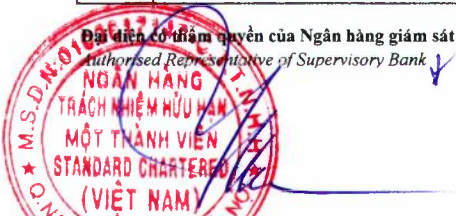 Đại diện có thẩm quyền của Ngân hàng giám sát
Authorised Representative of Supervisory Bank
NGÂN HÀNG
TRÁCH NHIỆM HỮU HẠN
MỘT THÀNH VIÊN
STANDARD CHARTERED
(VIỆT NAM)
M.S.D.N:
T.N.H.H